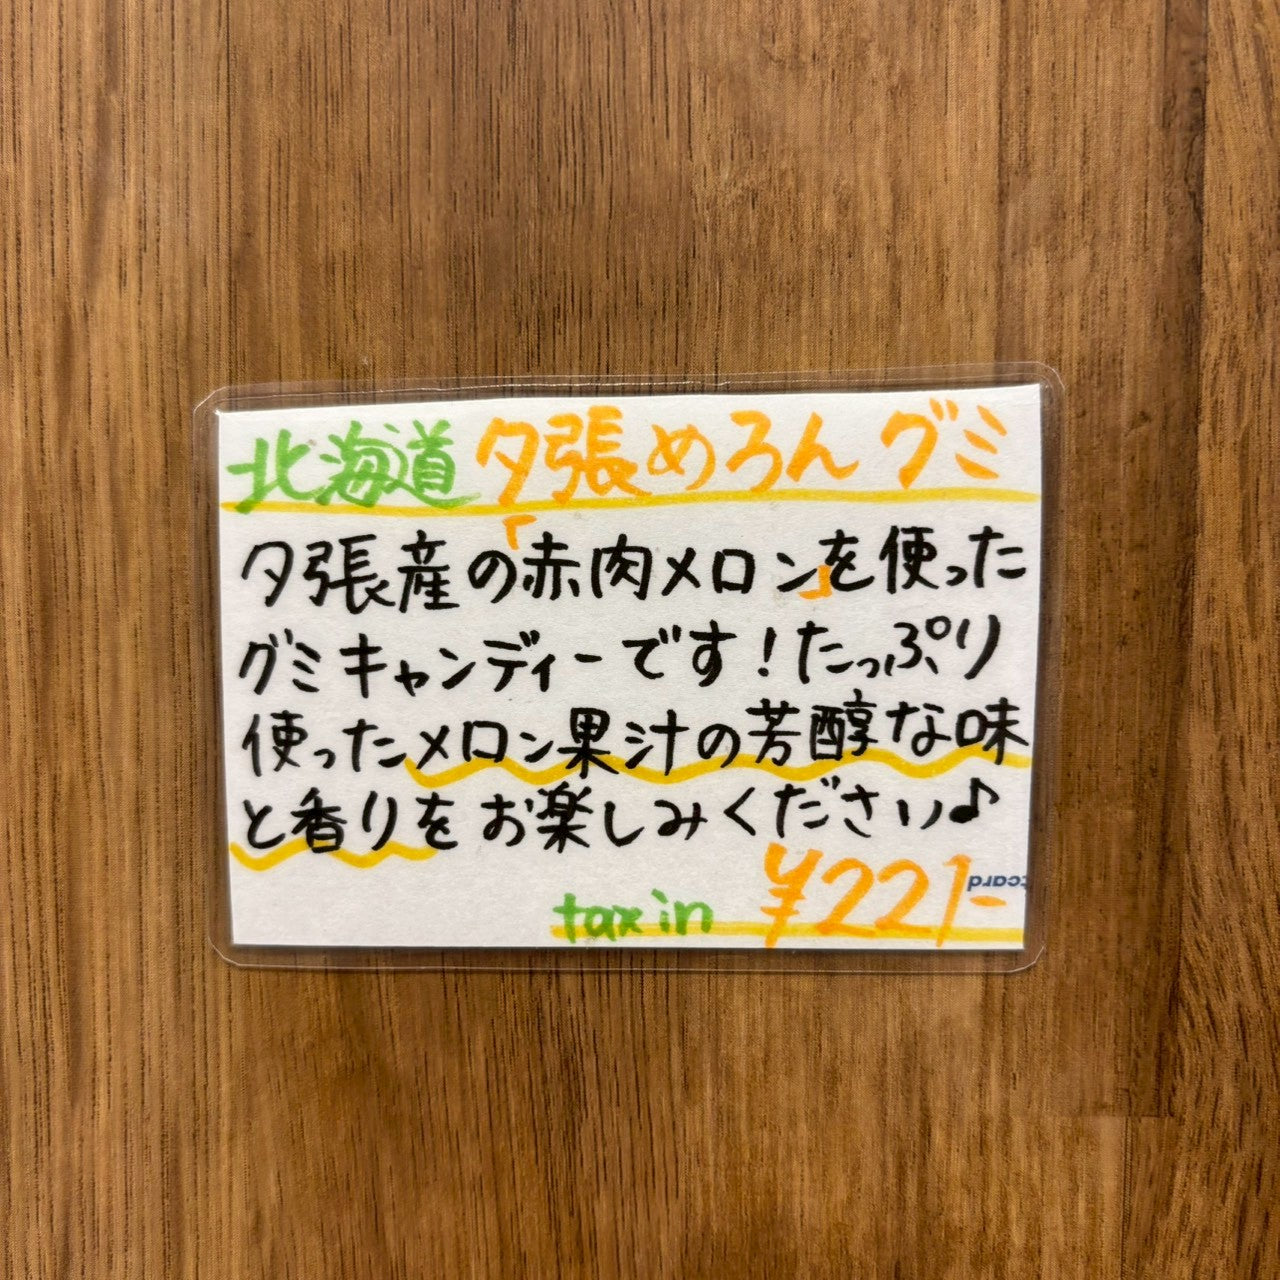 北海道 夕張めろん グミ
夕張産の「赤肉メロン」を使った
グミキャンディーです！たっぷり
使ったメロン果汁の芳醇な味
と香りをお楽しみください♪
tax in ¥221-
tcard